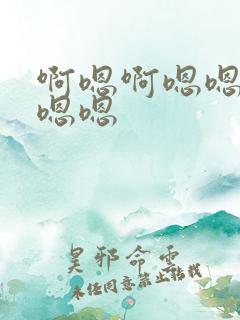 啊嗯啊嗯嗯
嗯嗯
昊邪命雲
未任同意禁止转载